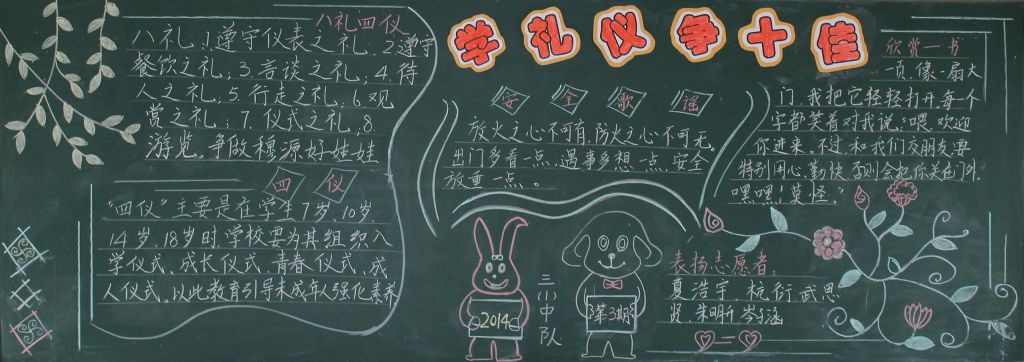 学礼仪争十佳
八礼四仪
八礼:1.遵守仪表之礼;2.遵守
餐饮之礼;3.言谈之礼;4.待
人之礼;5.行走之礼;6.观
赏之礼;7.仪式之礼;8.
游览。争做穆源好娃娃
四仪
“四仪”主要是在学生7岁、10岁、
14岁、18岁时,学校要为其组织入
学仪式、成长仪式、青春仪式、成
人仪式。以此教育引导未成年人强化素养
安全歌谣
放火之心不可有,防火之心不可无。
出门多看一点、遇事多想一点,安全
放重一点。
欣赏一书
一页,像一扇大
门,我把它轻轻打开,每一个
字都笑着对我说:“喂,欢迎
你进来,不过,和我们交朋友,要
特别用心,勤快,否则会把你关在门外,
嘿嘿!莫怪。”
2014
三(1)中队
第3期
表扬志愿者:
夏浩宇 杭衍 武思
贤 朱明昕 岑涵